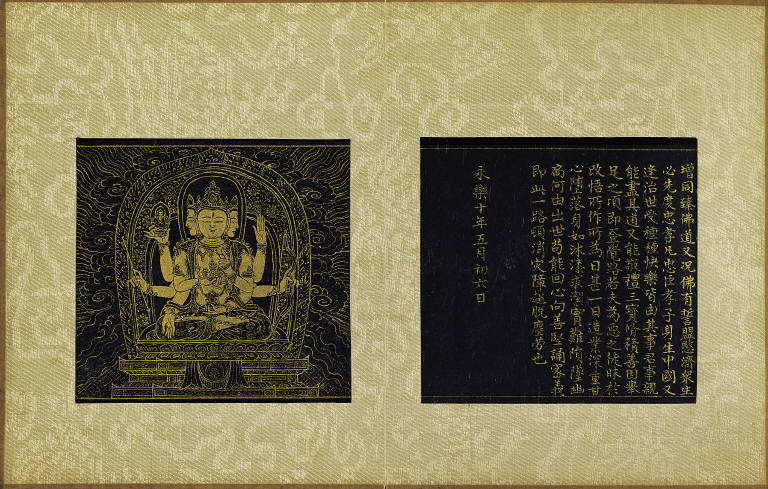 增同臻佛道又况佛有誓盟愍濟眾生
必先度忠孝凡忠臣孝子身生中國又
逢治世受種種快樂皆由其事君事親
能盡其道又能敬禮三寶脩積善因舉
足之頃即登覺路若夫為惡之徒昧於
改悟所作所為日甚一日造業深重甘
心墮落身如沐漆求瑩實難隋墜幽
高何由出世苟能回心向善堅誦密義
即此一路頓消灾障超脫塵勞也
永樂十年五月初六日